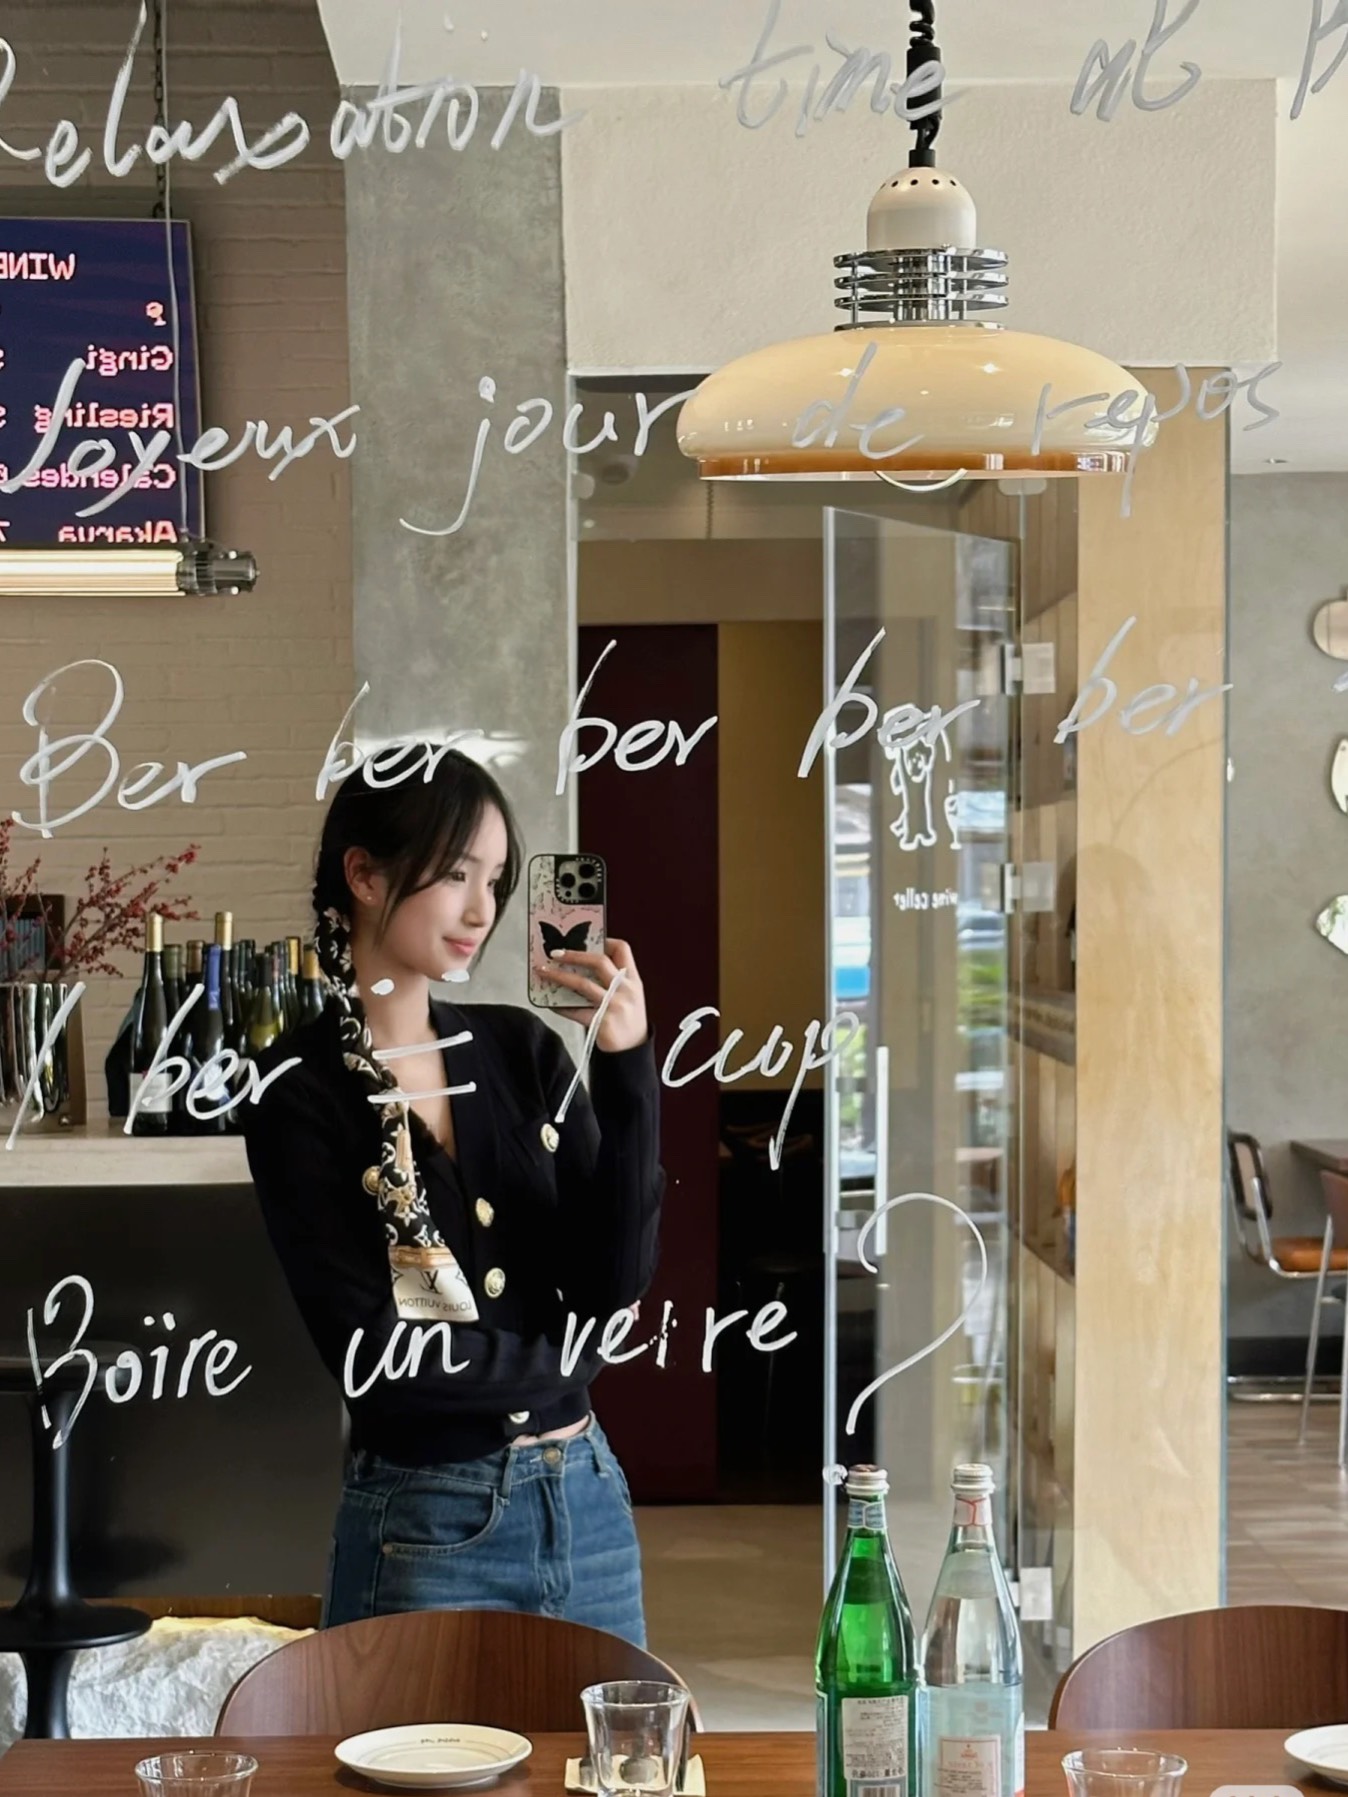 Relaxation time at
Joyeux jour de repos
Ber ber ber ber ber
1 ber = 1 cup
Boire un verre ?
WINE
Gingi
Riesling
Calendes
Akarua
wine celler
LOUIS VUITTON